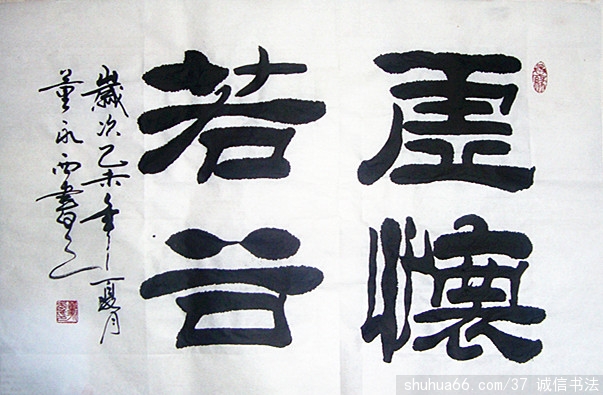 虚懷
若谷
歲次乙未年夏月
董永西書之
shuhua66.com/37 诚信书法